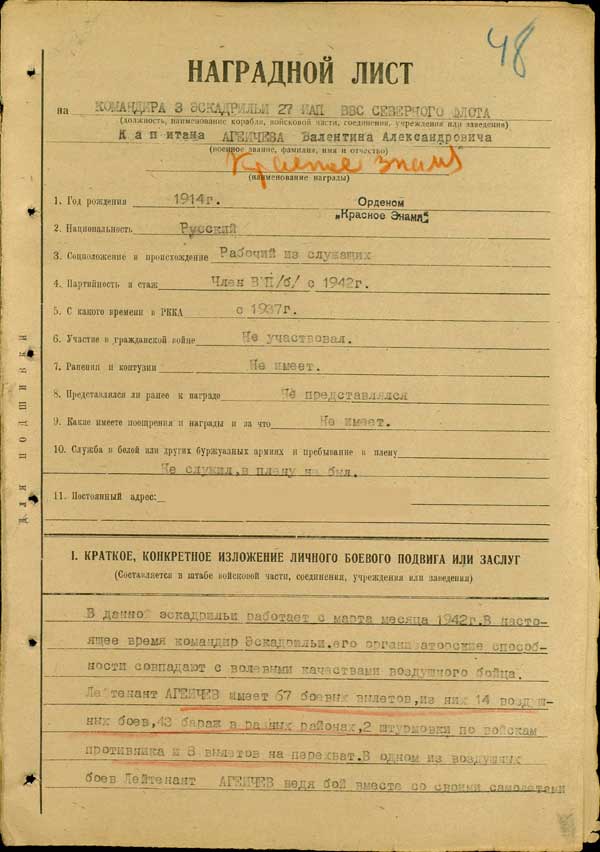 48
НАГРАДНОЙ ЛИСТ
на КОМАНДИРА 3 ЭСКАДРИЛЬИ 27 ИАП ВВС СЕВЕРНОГО ФЛОТА
(должность, наименование корабля, войсковой части, соединения, учреждения или заведения)
Капитана АГЕИЧЕВА Валентина Александровича
(военное звание, фамилия, имя и отчество)
Красное знамя
(наименование награды)
1. Год рождения 1914г. Орденом
„Красное Знамя"
2. Национальность Русский
3. Соцположение и происхождение Рабочий из служащих
4. Партийность и стаж Член ВП/б/ с 1942г.
5. С какого времени в РККА с 1937г.
6. Участие в гражданской войне Не участвовал.
7. Ранения и контузии Не имеет.
8. Представлялся ли ранее к награде Не представлялся
9. Какие имеете поощрения и награды и за что Не имеет.
10. Служба в белой или других буржуазных армиях и пребывание в плену
Не служил, в плену не был.
11. Постоянный адрес:
для подшивки
I. КРАТКОЕ, КОНКРЕТНОЕ ИЗЛОЖЕНИЕ ЛИЧНОГО БОЕВОГО ПОДВИГА ИЛИ ЗАСЛУГ
(Составляется в штабе войсковой части, соединения, учреждения или заведения)
В данной эскадрильи работает с марта месяца 1942г.В насто-
ящее время командир Эскадрильи.его организаторские способ-
ности совпадают с волевыми качествами воздушного бойца.
Лейтенант АГЕИЧЕВ имеет 67 боевых вылетов,из них 14 воздуш-
ных боев,43 бараж в разных районах,2 штурмовки по войскам
противника и 8 вылетов на перехват.В одном из воздушных
боев Лейтенант АГЕИЧЕВ ведя бой вместе со своими самолетами